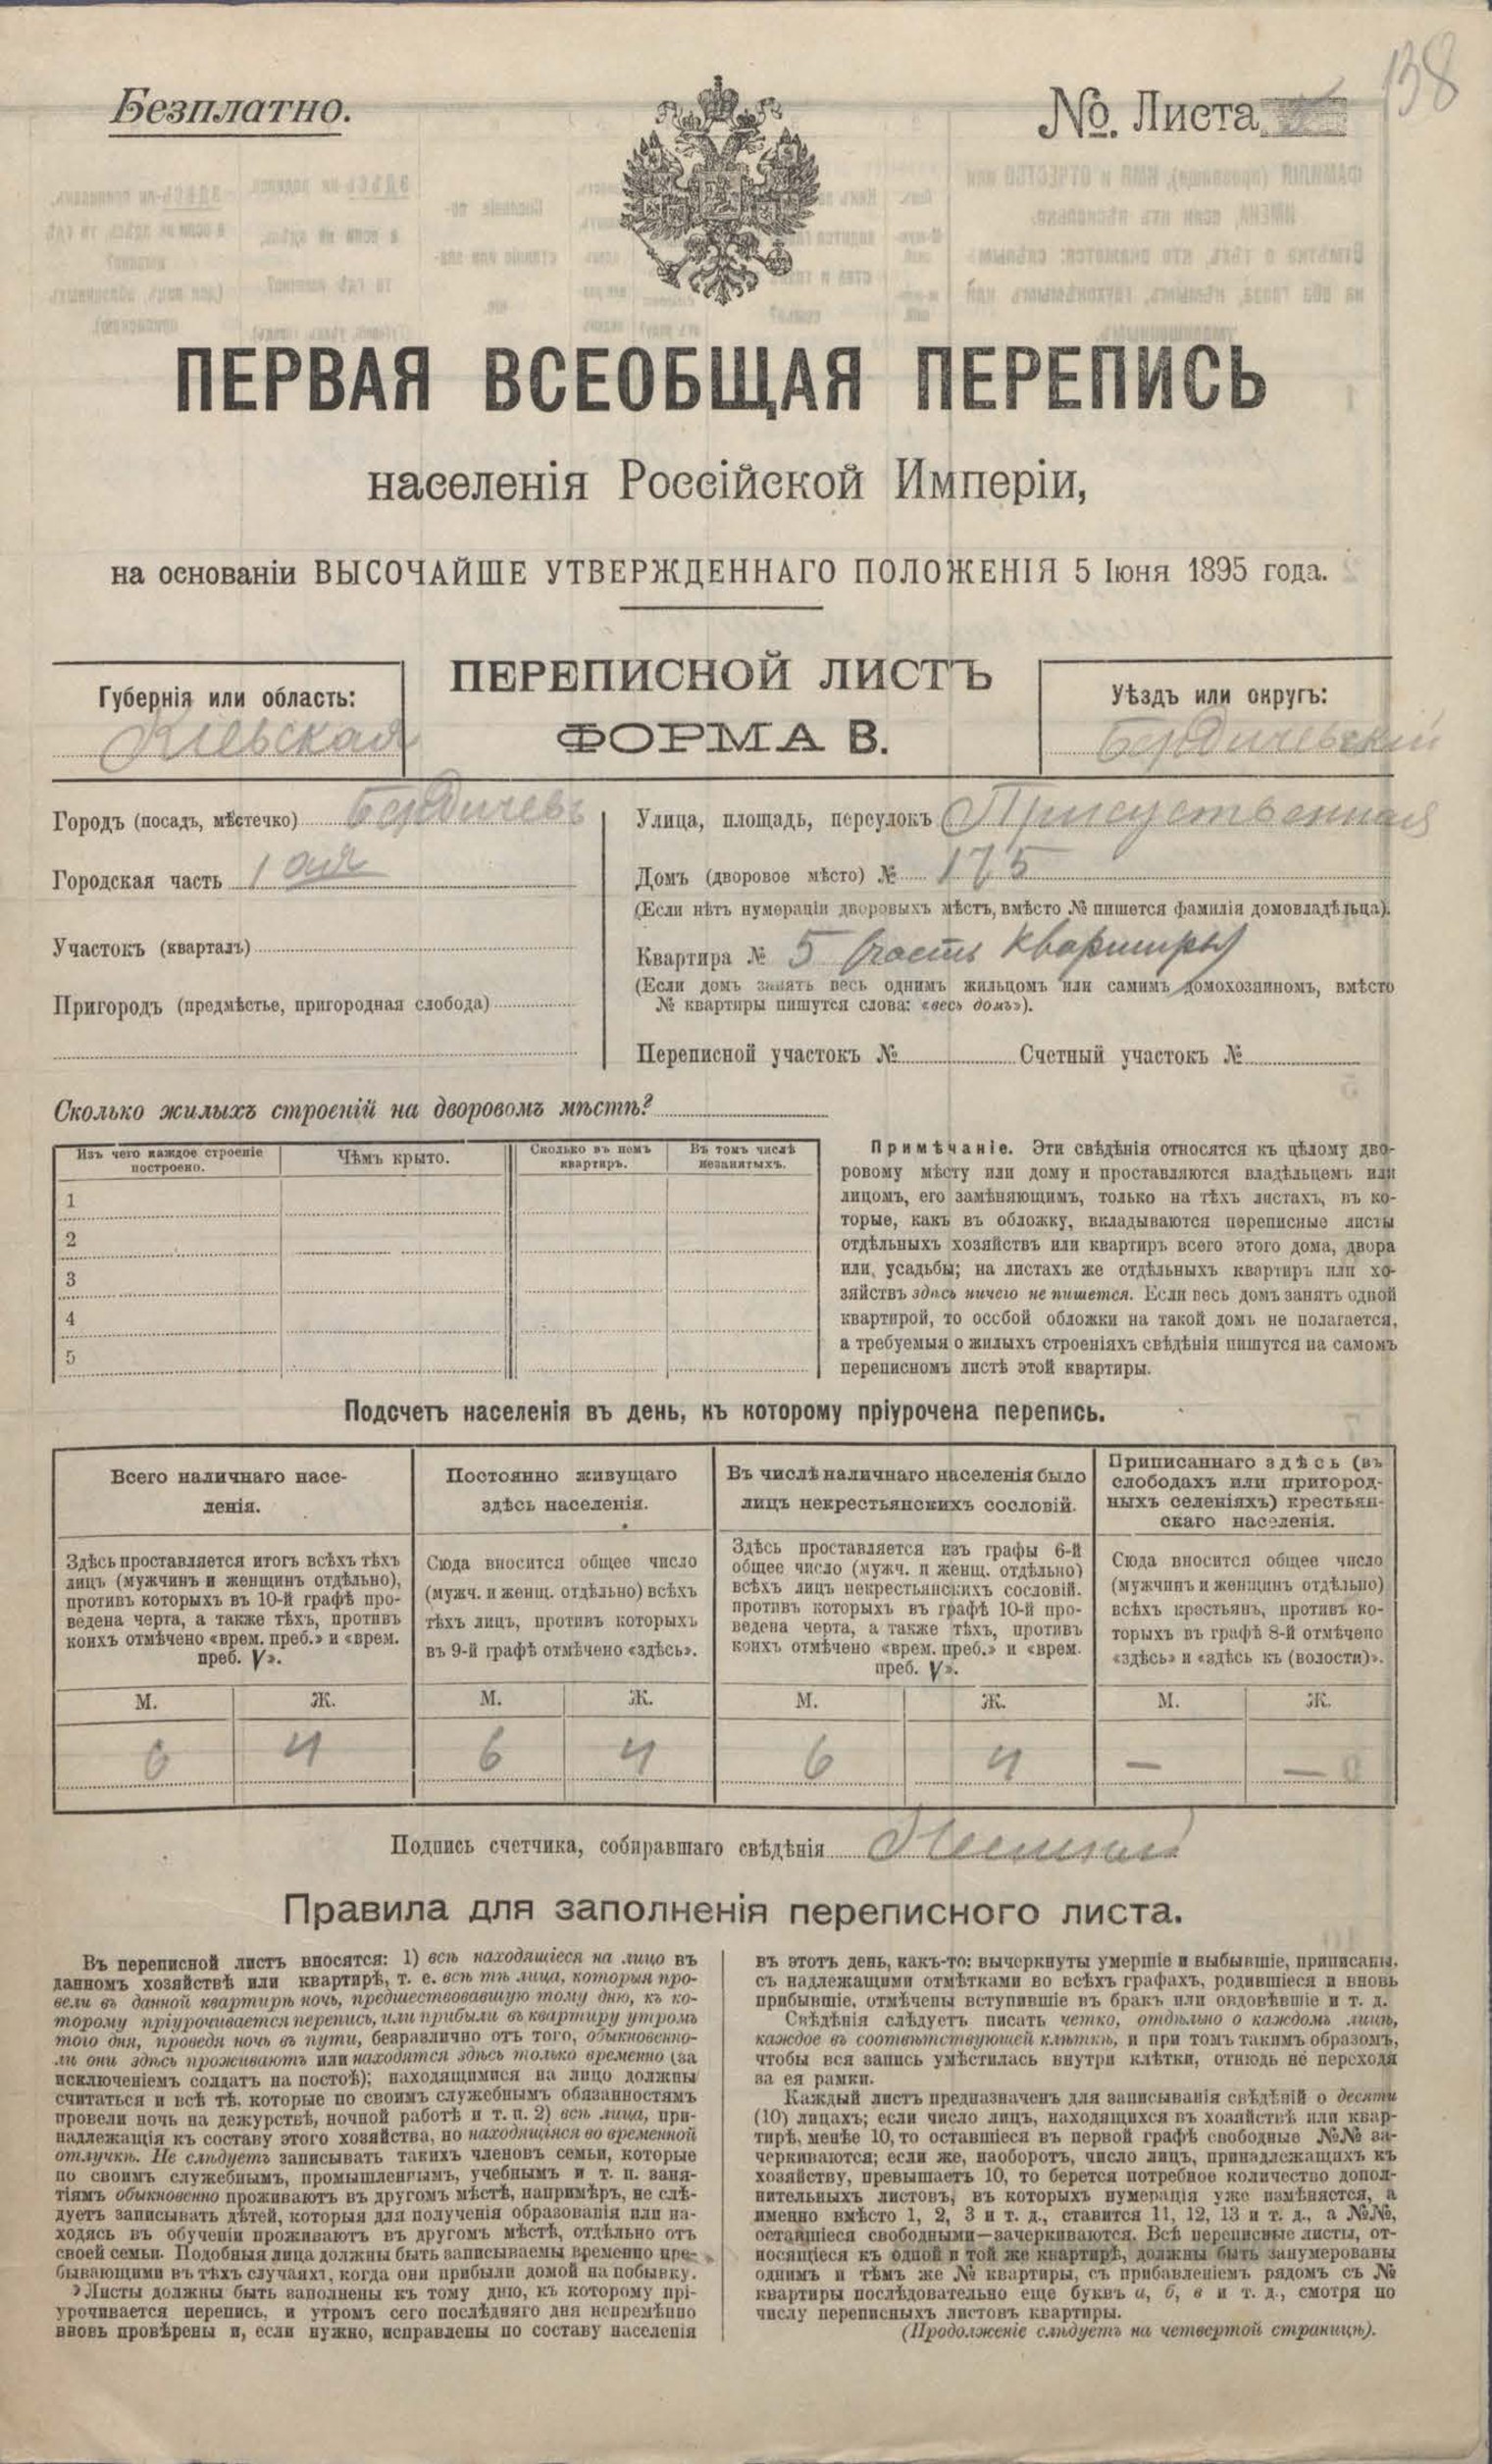 138
Безплатно.
№. Листа
ПЕРВАЯ ВСЕОБЩАЯ ПЕРЕПИСЬ
населенія Россійской Имперіи,
на основаніи ВЫСОЧАЙШЕ УТВЕРЖДЕННАГО ПОЛОЖЕНІЯ 5 Іюня 1895 года.
ПЕРЕПИСНОЙ ЛИСТЪ
ФОРМА В.
Губернія или область:
Кіевская
Уѣздъ или округъ:
Бердичевскій
Городъ (посадъ, мѣстечко) Бердичевъ
Городская часть 1 ая
Участокъ (кварталъ)
Пригородъ (предмѣстье, пригородная слобода)
Улица, площадь, переулокъ Присуственная
Домъ (дворовое мѣсто) № 175
(Если нѣтъ нумераціи дворовыхъ мѣстъ, вмѣсто № пишется фамилія домовладѣльца).
Квартира № 5 часть квартиры
(Если домъ занятъ весь однимъ жильцомъ или самимъ домохозяиномъ, вмѣсто
№ квартиры пишутся слова: «весь домъ»).
Переписной участокъ № Счетный участокъ №
Сколько жилыхъ строеній на дворовомъ мѣстѣ?
Изъ чего каждое строеніе
построено.
Чѣмъ крыто.
Сколько въ немъ
квартиръ.
Въ томъ числѣ
незанятыхъ.
1
2
3
4
5
Примѣчаніе. Эти свѣдѣнія относятся къ цѣлому дво-
ровому мѣсту или дому и проставляются владѣльцемъ или
лицомъ, его замѣняющимъ, только на тѣхъ листахъ, въ ко-
торые, какъ въ обложку, вкладываются переписные листы
отдѣльныхъ хозяйствъ или квартиръ всего этого дома, двора
или, усадьбы; на листахъ же отдѣльныхъ квартиръ или хо-
зяйствъ здѣсь ничего не пишется. Если весь домъ занятъ одной
квартирой, то особой обложки на такой домъ не полагается,
а требуемыя о жилыхъ строеніяхъ свѣдѣнія пишутся на самомъ
переписномъ листѣ этой квартиры.
Подсчетъ населенія въ день, къ которому пріурочена перепись.
Всего наличнаго насе-
ленія.
Здѣсь проставляется итогъ всѣхъ тѣхъ
лицъ (мужчинъ и женщинъ отдѣльно),
противъ которыхъ въ 10-й графѣ про-
ведена черта, а также тѣхъ, противъ
коихъ отмѣчено «врем. преб.» и «врем.
преб. V».
М. Ж.
6 4
Постоянно живущаго
здѣсь населенія.
Сюда вносится общее число
(мужч. и женщ. отдѣльно) всѣхъ
тѣхъ лицъ, противъ которыхъ
въ 9-й графѣ отмѣчено «здѣсь».
М. Ж.
6 4
Въ числѣ наличнаго населенія было
лицъ некрестьянскихъ сословій.
Здѣсь проставляется изъ графы 6-й
общее число (мужч. и женщ. отдѣльно)
всѣхъ лицъ некрестьянскихъ сословій.
противъ которыхъ въ графѣ 10-й про-
ведена черта, а также тѣхъ, противъ
коихъ отмѣчено «врем. преб.» и «врем.
преб. V».
М. Ж.
6 4
Приписаннаго здѣсь (въ
слободахъ или пригород-
ныхъ селеніяхъ) крестьян-
скаго населенія.
Сюда вносится общее число
(мужчинъ и женщинъ отдѣльно)
всѣхъ крестьянъ, противъ ко-
торыхъ въ графѣ 8-й отмѣчено
«здѣсь» и «здѣсь къ (волости)».
М. Ж.
— —
Подпись счетчика, собиравшаго свѣдѣнія
Правила для заполненія переписного листа.
Въ переписной листъ вносятся: 1) всѣ находящіеся на лицо въ
данномъ хозяйствѣ или квартирѣ, т. е. всѣ тѣ лица, которыя про-
вели въ данной квартирѣ ночь, предшествовавшую тому дню, къ ко-
торому пріурочивается перепись, или прибыли въ квартиру утромъ
того дня, проведя ночь въ пути, безразлично отъ того, обыкновенно-
ли они здѣсь проживаютъ или находятся здѣсь только временно (за
исключеніемъ солдатъ на постоѣ); находящимися на лицо должны
считаться и всѣ тѣ, которые по своимъ служебнымъ обязанностямъ
провели ночь на дежурствѣ, ночной работѣ и т. п. 2) всѣ лица, при-
надлежащія къ составу этого хозяйства, но находящіяся во временной
отлучкѣ. Не слѣдуетъ записывать такихъ членовъ семьи, которые
по своимъ служебнымъ, промышленнымъ, учебнымъ и т. п. заня-
тіямъ обыкновенно проживаютъ въ другомъ мѣстѣ, напримѣръ, не слѣ-
дуетъ записывать дѣтей, которыя для полученія образованія или на-
ходясь въ обученіи проживаютъ въ другомъ мѣстѣ, отдѣльно отъ
своей семьи. Подобныя лица должны быть записываемы временно пре-
бывающими въ тѣхъ случаяхъ, когда они прибыли домой на побывку.
Листы должны быть заполнены къ тому дню, къ которому прі-
урочивается перепись, и утромъ сего послѣдняго дня непремѣнно
вновь провѣрены и, если нужно, исправлены по составу населенія
въ этотъ день, какъ-то: вычеркнуты умершіе и выбывшіе, приписаны.
съ надлежащими отмѣтками во всѣхъ графахъ, родившіеся и вновь
прибывшіе, отмѣчены вступившіе въ бракъ или овдовѣвшіе и т. д.
Свѣдѣнія слѣдуетъ писать четко, отдѣльно о каждомъ лицѣ,
каждое въ соотвѣтствующей клѣткѣ, и при томъ такимъ образомъ,
чтобы вся запись умѣстилась внутри клѣтки, отнюдь не переходя
за ея рамки.
Каждый листъ предназначенъ для записыванія свѣдѣній о десяти
(10) лицахъ; если число лицъ, находящихся въ хозяйствѣ или квар-
тирѣ, менѣе 10, то оставшіеся въ первой графѣ свободные №№ за-
черкиваются; если же, наоборотъ, число лицъ, принадлежащихъ къ
хозяйству, превышаетъ 10, то берется потребное количество допол-
нительныхъ листовъ, въ которыхъ нумерація уже измѣняется, а
именно вмѣсто 1, 2, 3 и т. д., ставится 11, 12, 13 и т. д., а №№,
оставшіеся свободными—зачеркиваются. Всѣ переписные листы, от-
носящіеся къ одной и той же квартирѣ, должны быть занумерованы
однимъ и тѣмъ же № квартиры, съ прибавленіемъ рядомъ съ №
квартиры послѣдовательно еще буквъ а, б, в и т. д., смотря по
числу переписныхъ листовъ квартиры.
(Продолженіе слѣдуетъ на четвертой страницѣ).